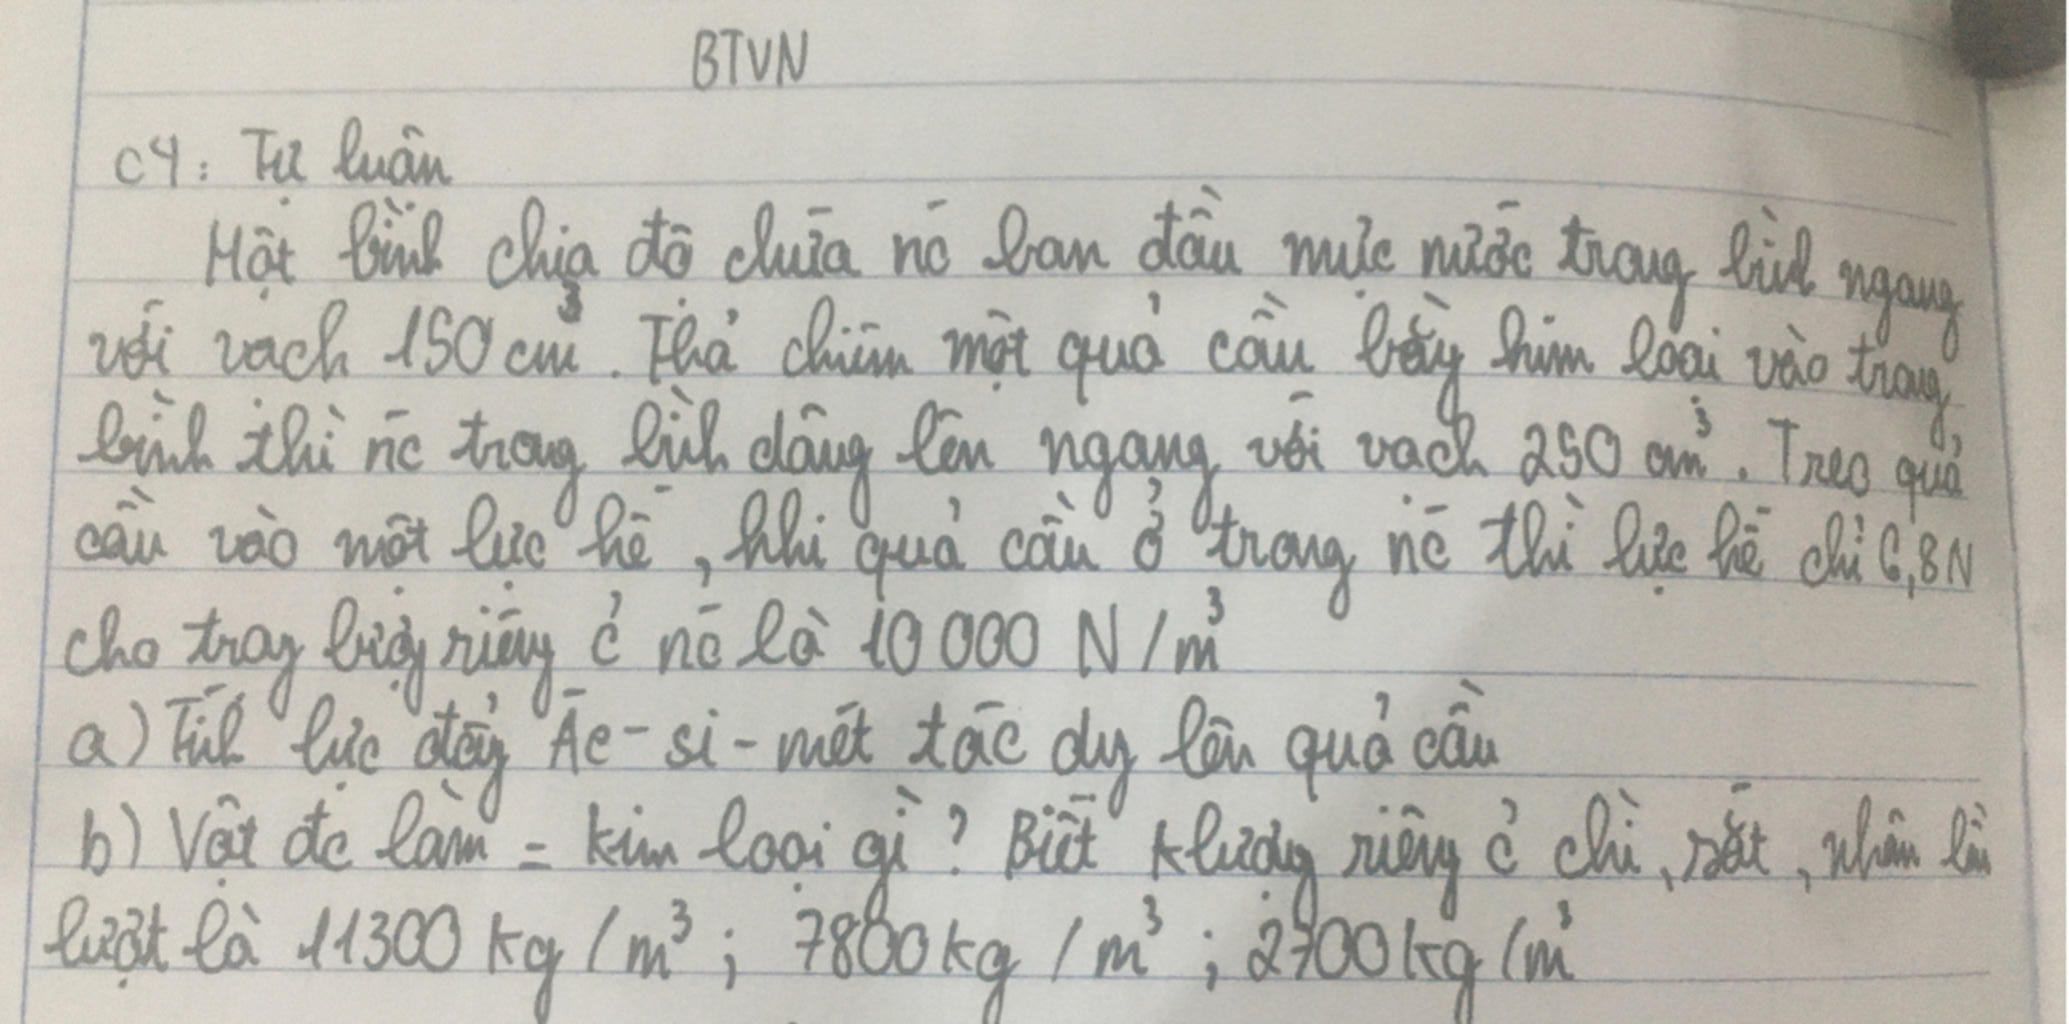 BTVN
C4: Tự luận
Một bình chia độ chứa nc ban đầu mực nước trong bình ngang
với vạch 150 cm³. Thả chìm một quả cầu bằng kim loại vào trong
bình thì nc trong bình dâng lên ngang với vạch 250 cm³. Treo quả
cầu vào một lực kế, khi quả cầu ở trong nc thì lực kế chỉ 6,8N
cho trọng lượng riêng ủ nc là 10 000 N/m³
a) Tính lực đẩy Ác-si-mét tác dụng lên quả cầu
b) Vật đc làm = kim loại gì? Biết klượng riêng ủ chì, sắt, nhôm lần
lượt là 11300 kg/m³; 7800kg/m³; 2700kg/m³